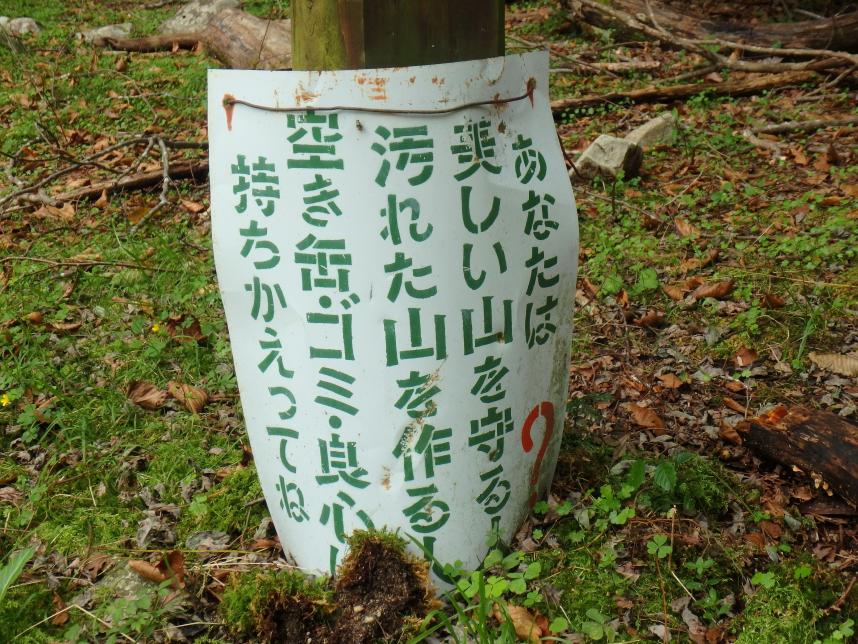 あなたは？
美しい山を守る人
汚れた山を作る人
空き缶・ゴミ・良心
持ちかえってね